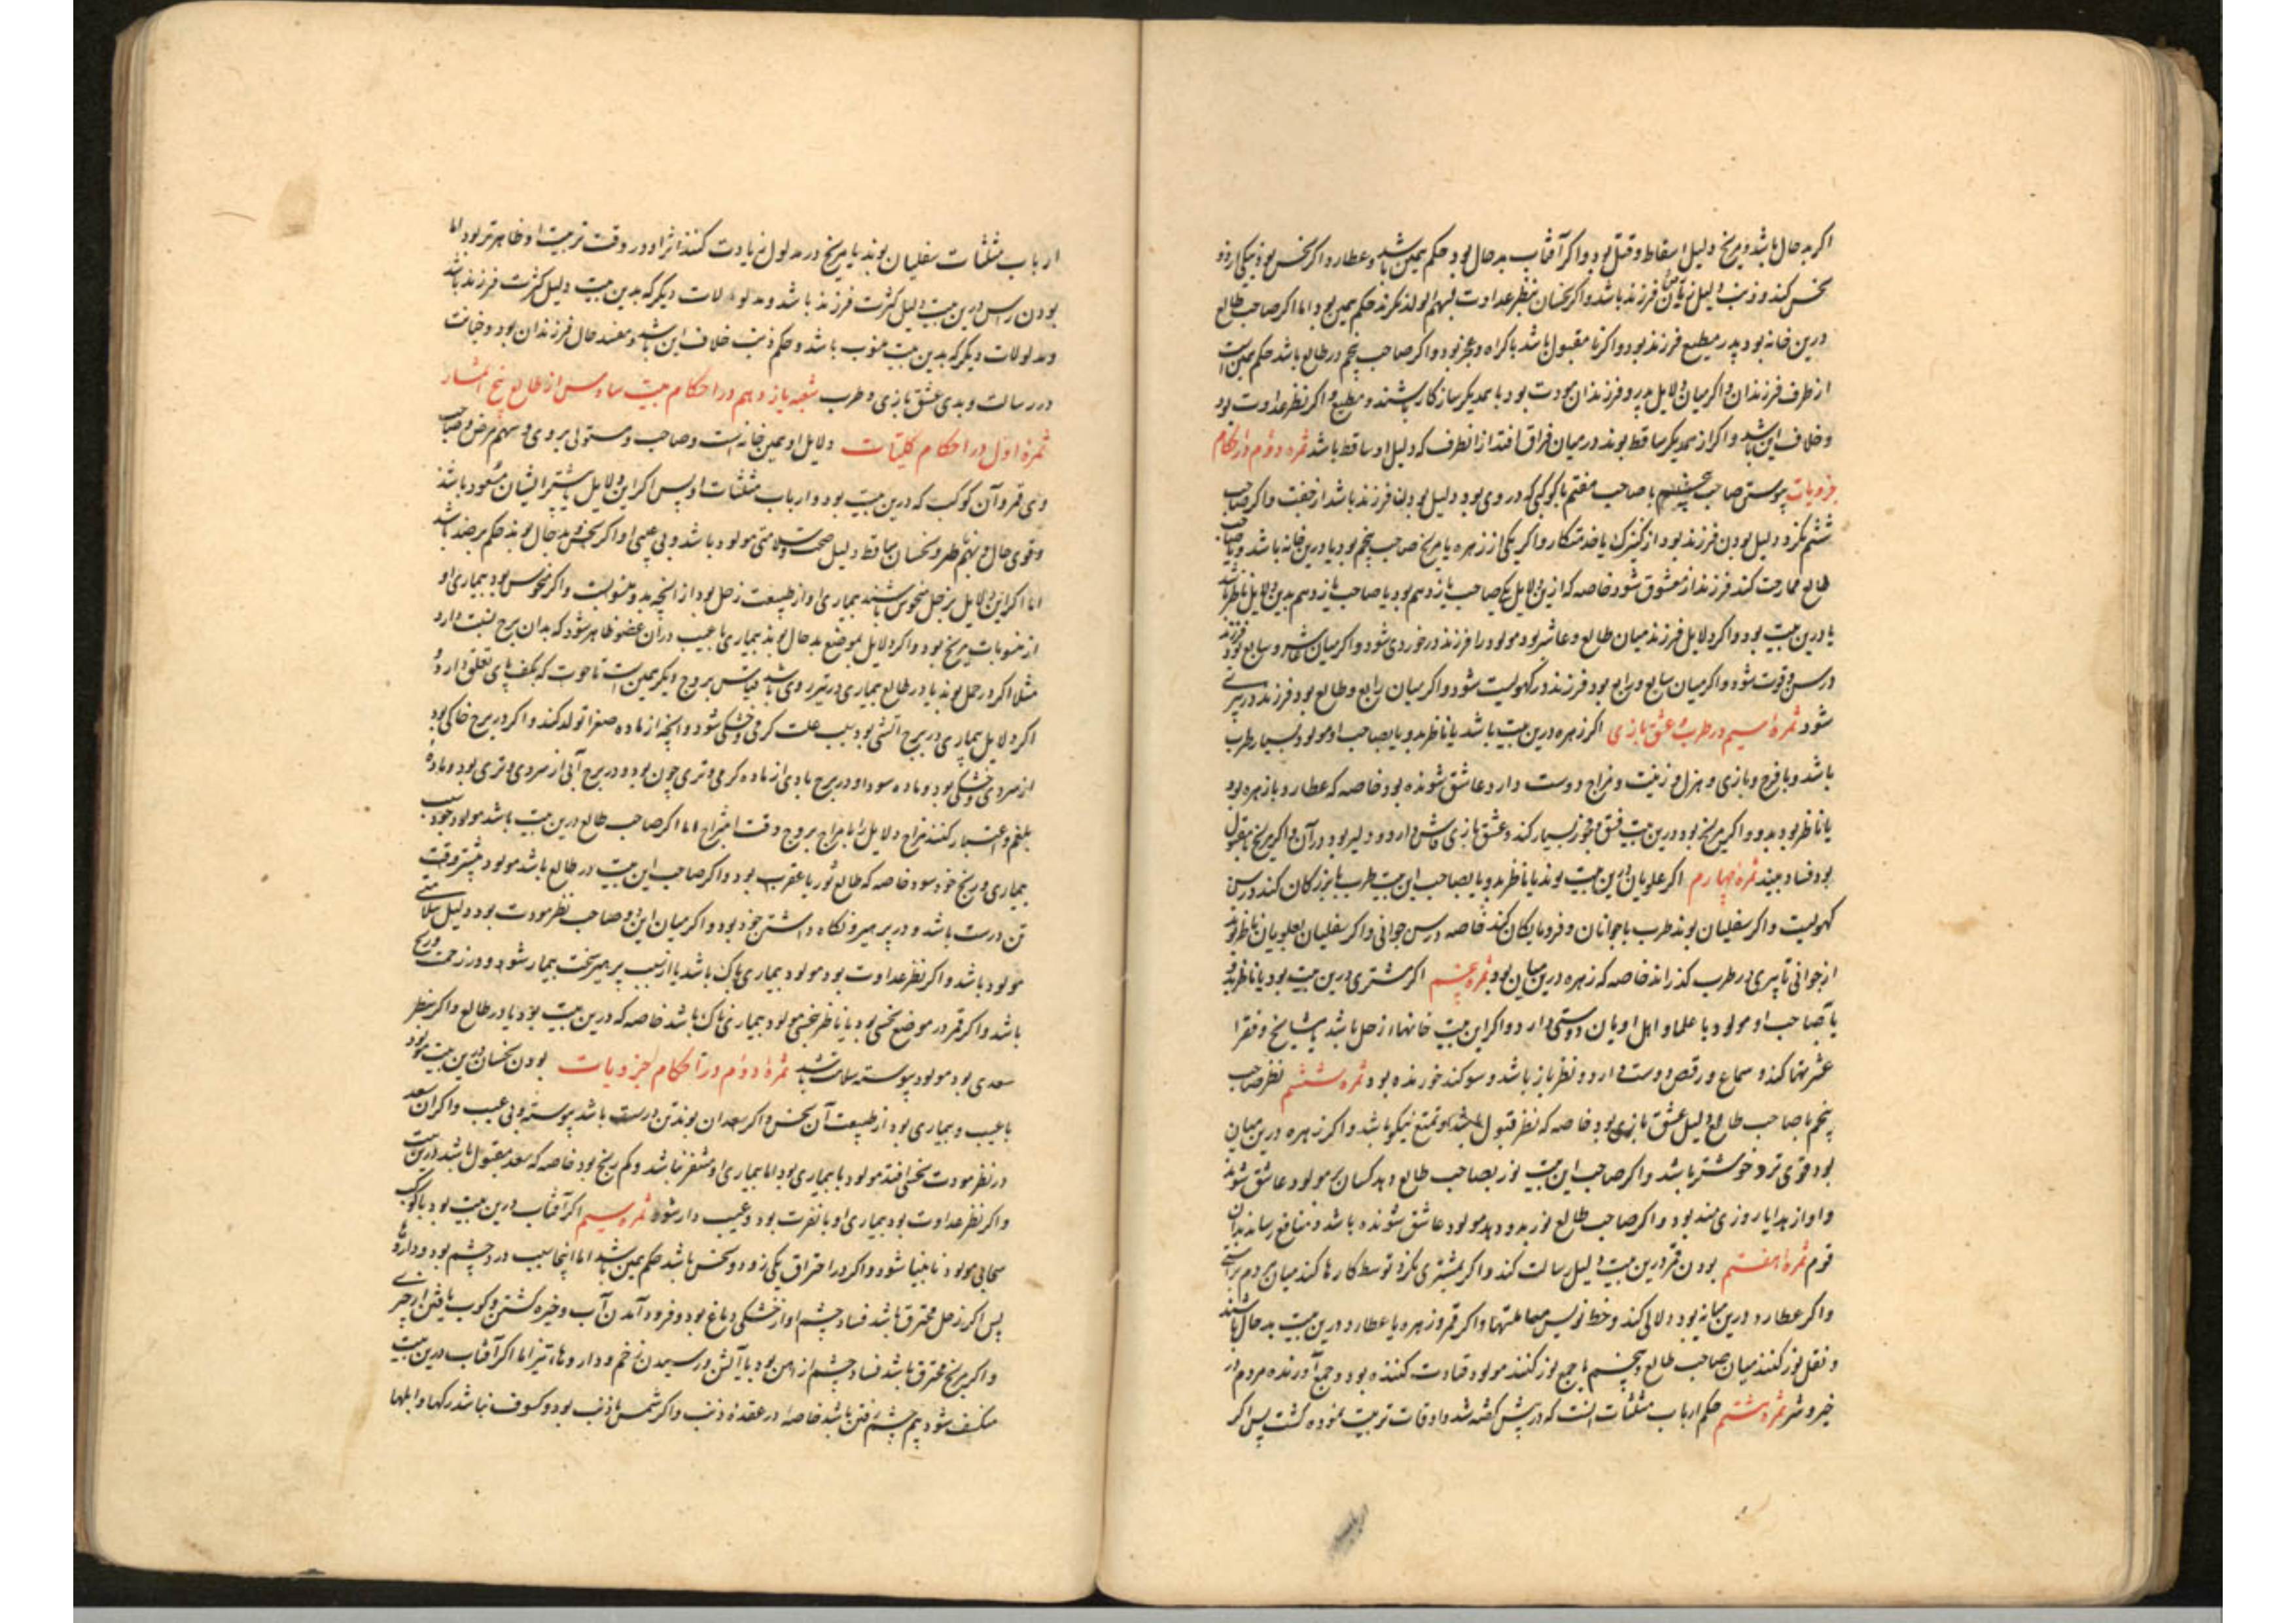 اکر بد حال باشد و مریخ دلیل اسقاط و قتل بود و اکر آفتاب بد حال بود حکم همین باشد و عطارد اکر نحس بود نیکی ارزو
نحس کند و ذنب دلیل زیان فرزند باشد و اکر نحسان بنظر عداوت بسهم الولد نکرند حکم همین بود اما اکر صاحب طالع
درین خانه بود پدر مطیع فرزند بود و اکر نامقبول باشد باکراه و عجز بود و اکر صاحب پنجم در طالع باشد حکم همین است
از طرف فرزندان و اکر میان دلایل پدر و فرزندان مودت بود با همدیکر سازکار باشند و مطیع و اکر نظر عداوت بود
و خلاف این باشد و اکر از همدیکر ساقط بوند در میان فراق افتد از انطرف که دلیل او ساقط باشد ثمره دوم در احکام
جزویات پیوستن صاحب ششم با صاحب هفتم یا کوکبی که در وی بود دلیل بودن فرزند باشد از جفت و اکر صاحب
ششم نکرد دلیل بودن فرزند بود از کنیزک یا خدمتکار و اکر یکی از زهره یا مریخ صاحب پنجم بود یا درین خانه باشد و یا صاحب
طالع ممازجت کند فرزند از معشوق شود خاصه که ازین دلایل یکی صاحب یازدهم بود یا صاحب یازدهم بدین دلایل ناظر باشد
یا درین بیت بود و اکر دلایل فرزند میان طالع و عاشر بود مولود را فرزند در خوردی شود و اکر میان عاشر و سابع بود فرزند
در سن وقوت شود و اکر میان سابع و رابع بود فرزند در کهولیت شود و اکر میان رابع و طالع بود فرزند در پیری
شود ثمره سیم در طرب و عشق بازی اکر زهره درین بیت باشد یا ناظر بدو یا بصاحب او مولود بسیار طرب
باشد و با فرح و بازی و هزل و زینت و مزاح دوست دارد عاشق شونده بود خاصه که عطارد با زهره بود
یا ناظر بود بدو و اکر مریخ بود درین بیت فسق و فجور بسیار کند و عشق بازی فاش دارد و دلیر بود در آن و اکر مریخ نامقبول
بود فساد بیند ثمره چهارم اکر علویان درین بیت بوند یا ناظر بدو یا بصاحب این بیت طرب با بزرکان کند در سن
کهولیت و اکر سفلیان بوند طرب با جوانان و فرومایکان کند خاصه در سن جوانی و اکر سفلیان بعلویان ناظر بوند
از جوانی تا پیری در طرب کذراند خاصه که زهره درین میان بود ثمره پنجم اکر مشتری درین بیت بود یا ناظر بدو
یا صاحب او مولود با علما و اهل اویان دوستی دارد و اکر این بیت خانهاء زحل باشد با مشایخ و فقرا
عشرتها کند و سماع و رقص دوست دارد و نظر باز باشد و سوکند خورنده بود ثمره ششم نظر صاحب
پنجم با صاحب طالع دلیل عشق بازی بود خاصه که نظر قبول باشد و تمتع نیکو باشد و اکر زهره درین میان
بود قوی تر و خوشتر باشد و اکر صاحب این بیت نور بصاحب طالع دهد کسان بر مولود عاشق شوند
و او از هدایا روزی مند بود و اکر صاحب طالع نور بدو دهد مولود عاشق شونده باشد و منافع رساند بدان
قوم ثمره هفتم بودن قمر درین بیت دلیل رسالت کند و اکر بمشتری نکرد توسط کارها کند میان مردم براستی
و اکر عطارد درین میانه بود دلالی کند و خط نویس معاملتها و اکر قمر و زهره با عطارد درین بیت بد حال باشند
و نقل نور کنند میان صاحب طالع و پنجم یا جمع نور کنند مولود قیادت کننده بود و جمع آورنده مردم در
خیر و شر ثمره هشتم حکم ارباب مثلثات انست که در پیش کفته شد و اوقات تربیت نموده کشت پس اکر
ارباب مثلثات سفلیان بوند یا مریخ در مدلول زیادت کنند اثر او در وقت تربیت او ظاهر تر بود اما
بودن راس درین بیت دلیل کثرت فرزند باشد و مدلولات دیکر که بدین بیت دلیل کثرت فرزند باشد
و مدلولات دیکر که بدین بیت منسوب باشد و حکم ذنب خلاف این باشد و مفسد حال فرزندان بود و خیانت
در رسالت و بدی عشق بازی و طرب شعبه یازدهم در احکام بیت سادس از طالع پنج اثمار
ثمره اول در احکام کلیات دلایل او همین خانه است و صاحب و مستولی بر وی و سهم مرض و صاحب
وی و قمر و آن کوکب که درین بیت بود و ارباب مثلثات او پس اکر این دلایل یا بیشتر ایشان مسعود باشند
و قوی حال و بهم ناظر و نحسان ساقط دلیل صحت و سلامتی مولود باشد و بی عیبی او و اکر نحس و بد حال بوند حکم بر ضد باشد
اما اکر این دلایل بزحل منحوس باشند بیماری او از طبیعت زحل بود از انچه بدو منسوبست و اکر منحوس بود بیماری او
از منسوبات مریخ بود و اکر دلایل بموضع بد حال بوند بیماری یا عیب در آن عضو ظاهر شود که بدان برج نسبت دارد
مثلا اکر در حمل بوند یا در طالع بیماری در سر و روی باشد و قیاس بروج دیکر همین است تا حوت که بکف پای تعلق دارد و
اکر دلایل بیماری در برج آتشی بود سبب علت کرمی و خشکی شود و انچه از ماده صفرا تولد کند و اکر در برج خاکی بود
از سردی و خشکی بود و ماده سودا و در برج بادی از ماده کرمی و تری چون بود و در برج آبی از سردی و تری بود و ماده
بلغم و اعتبار کنند مزاج دلایل را با مزاج بروج وقت امتزاج اما اکر صاحب طالع درین بیت باشد مولود خود سبب
بیماری و رنج خود شود خاصه که طالع ثور یا عقرب بود و اکر صاحب این بیت در طالع باشد مولود بیشتر وقت
تن درست باشد و در پرهیز و نکاه داشتن خود بود و اکر میان این دو صاحب نظر مودت بود دلیل سلامتی
مولود باشد و اکر نظر عداوت بود مولود بیماری ناک باشد یا از سبب پرهیز سخت بیمار شود و در زحمت و رنج
باشد و اکر قمر در موضع نحسی بود یا ناظر بنحسی مولود بیماری ناک باشد خاصه که درین بیت بود یا در طالع و اکر بنظر
سعدی بود مولود پیوسته سلامت باشد ثمره دوم در احکام جزویات بودن نحسان درین بیت مولود
با عیب و بیماری بود از طبیعت آن نحس و اکر سعدان بوند تن درست باشد پیوسته و بی عیب و اکر ان سعد
در نظر مودت نحسی افتد مولود با بیماری بود اما بیماری او متنفر نباشد و کم رنج بود خاصه که سعد مقبول باشد درین بیت
و اکر نظر عداوت بود بیماری او با نفرت بود و عیب دار شود ثمره سیم اکر آفتاب درین بیت بود با کوکب
سحابی مولود نابینا شود و اکر در احتراق یکی زو دو نحس باشد حکم همین باشد اما اینجا سبب درد چشم بود و داروها
پس اکر زحل محترق باشد فساد چشم او از خشکی دماغ بود و فرود آمدن آب و خیره کشتن و کوب یافتن از چیزی
و اکر مریخ محترق باشد فساد چشم از اهن بود یا آتش و رسیدن زخم و داروهاء تیز اما اکر آفتاب درین بیت
منکسف شود بیم چشم رفتن باشد خاصه در عقده ذنب و اکر شمس با ذنب بود و کسوف نباشد رکها و ابلها